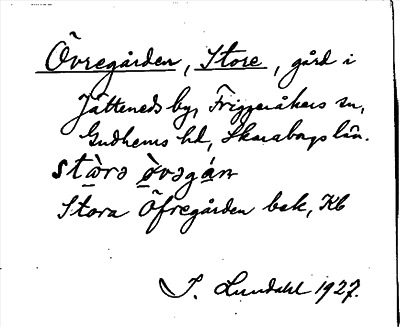 Övregården, Store, gård i
Jätteneds by, Friggeråkers sn,
Gudhems hd, Skaraborgs län.
stòrə òvəgán
Stora Öfregården bek, Kb
I. Lundahl 1927.